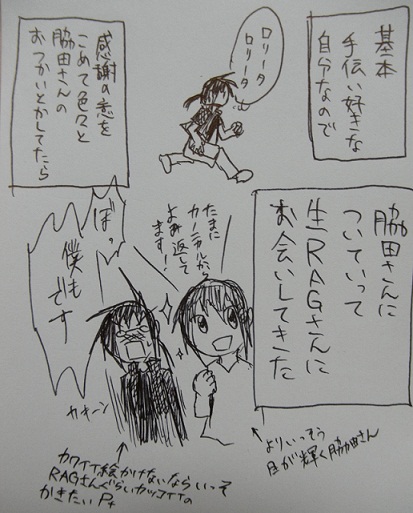 基本
手伝い好きな
自分なので
ロリータ
ロリータ
感謝の意を
こめて色々と
脇田さんの
おつかいとかしてたら
脇田さんに
ついていって
生RAGさんに
お会いしてきた
たまに
カーニバルから
よみ返して
ます!
ぼっ
僕も
です
カキーン
よりいっそう
目が輝く脇田さん
カワイイ絵かけないならいっそ
RAGさんぐらいカッコイイの
かきたい